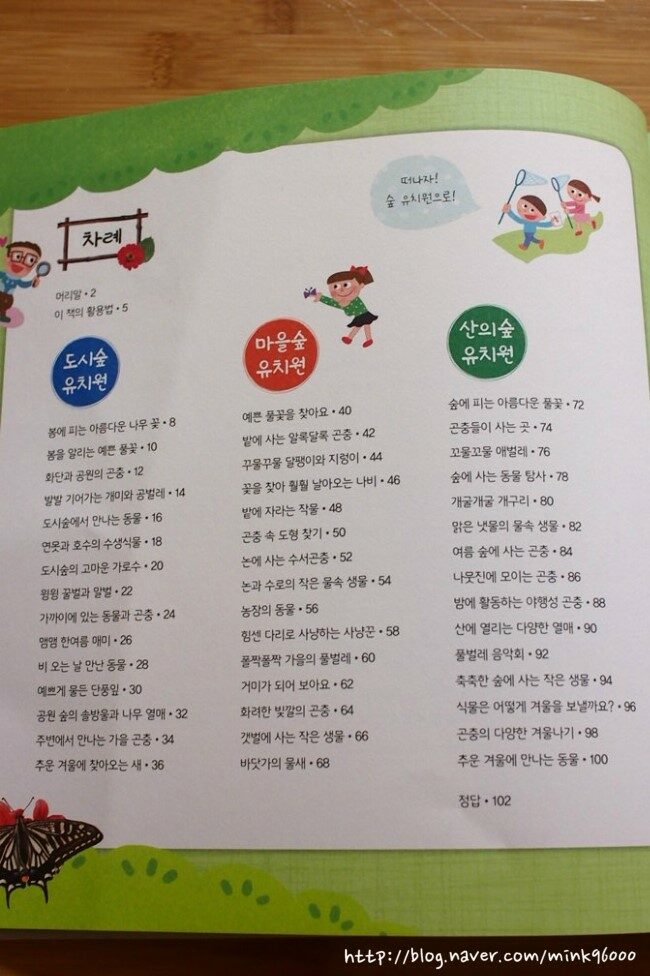 떠나자!
숲 유치원으로!
차례
머리말 • 2
이 책의 활용법 • 5
도시숲
유치원
봄에 피는 아름다운 나무 꽃 • 8
봄을 알리는 예쁜 풀꽃 • 10
화단과 공원의 곤충 • 12
발발 기어가는 개미와 공벌레 • 14
도시숲에서 만나는 동물 • 16
연못과 호수의 수생식물 • 18
도시숲의 고마운 가로수 • 20
윙윙 꿀벌과 말벌 • 22
가까이에 있는 동물과 곤충 • 24
맴맴 한여름 매미 • 26
비 오는 날 만난 동물 • 28
예쁘게 물든 단풍잎 • 30
공원 숲의 솔방울과 나무 열매 • 32
주변에서 만나는 가을 곤충 • 34
추운 겨울에 찾아오는 새 • 36
마을숲
유치원
예쁜 풀꽃을 찾아요 • 40
밭에 사는 알록달록 곤충 • 42
꾸물꾸물 달팽이와 지렁이 • 44
꽃을 찾아 훨훨 날아오는 나비 • 46
밭에 자라는 작물 • 48
곤충 속 도형 찾기 • 50
논에 사는 수서곤충 • 52
논과 수로의 작은 물속 생물 • 54
농장의 동물 • 56
힘센 다리로 사냥하는 사냥꾼 • 58
폴짝폴짝 가을의 풀벌레 • 60
거미가 되어 보아요 • 62
화려한 빛깔의 곤충 • 64
갯벌에 사는 작은 생물 • 66
바닷가의 물새 • 68
산의숲
유치원
숲에 피는 아름다운 풀꽃 • 72
곤충들이 사는 곳 • 74
꼬물꼬물 애벌레 • 76
숲에 사는 동물 탐사 • 78
개굴개굴 개구리 • 80
맑은 냇물의 물속 생물 • 82
여름 숲에 사는 곤충 • 84
나뭇진에 모이는 곤충 • 86
밤에 활동하는 야행성 곤충 • 88
산에 열리는 다양한 열매 • 90
풀벌레 음악회 • 92
축축한 숲에 사는 작은 생물 • 94
식물은 어떻게 겨울을 보낼까요? • 96
곤충의 다양한 겨울나기 • 98
추운 겨울에 만나는 동물 • 100
정답 • 102
http://blog.naver.com/mink96000